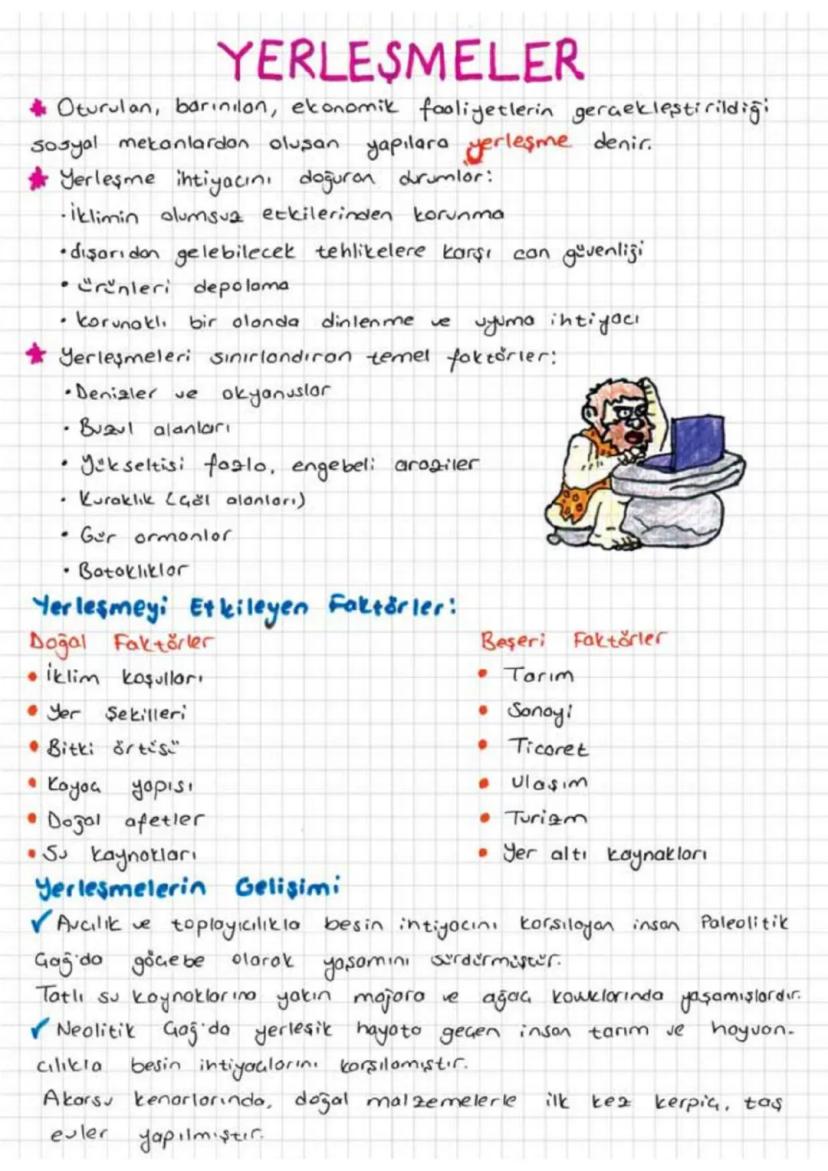 YERLEŞMELER
Oturulan, barınılan, ekonomik faaliyetlerin gerçekleştirildiği
sosyal mekanlardan oluşan yapılara yerleşme denir.
Yerleşme ihtiyacını doğuran durumlar:
• İklimin olumsuz etkilerinden korunma
• dışarıdan gelebilecek tehlikelere karşı can güvenliği
• ürünleri depolama
• korunaklı bir alanda dinlenme ve uyuma ihtiyacı
Yerleşmeleri sınırlandıran temel faktörler:
• Denizler ve okyanuslar
• Buzul alanları
• Yükseltisi fazla, engebeli araziler
• Kuraklık (çöl alanları)
• Gür ormanlar
• Bataklıklar
Yerleşmeyi Etkileyen Faktörler:
Doğal Faktörler
• İklim koşulları
• Yer Şekilleri
• Bitki örtüsü
• Kayaç yapısı
• Doğal afetler
• Su kaynakları
Beşeri Faktörler
• Tarım
• Sanayi
• Ticaret
• Ulaşım
• Turizm
• Yer altı kaynakları
Yerleşmelerin Gelişimi
✓ Avcılık ve toplayıcılıkla besin ihtiyacını karşılayan insan Paleolitik
Çağ'da göçebe olarak yaşamını sürdürmüştür.
Tatlı su kaynaklarına yakın mağara ve ağaç kovuklarında yaşamışlardır.
✓ Neolitik Çağ'da yerleşik hayata geçen insan tarım ve hayvan-
cılıkla besin ihtiyaçlarını karşılamıştır.
Akarsu kenarlarında, doğal malzemelerle ilk kez kerpiç, taş
evler yapılmıştır.